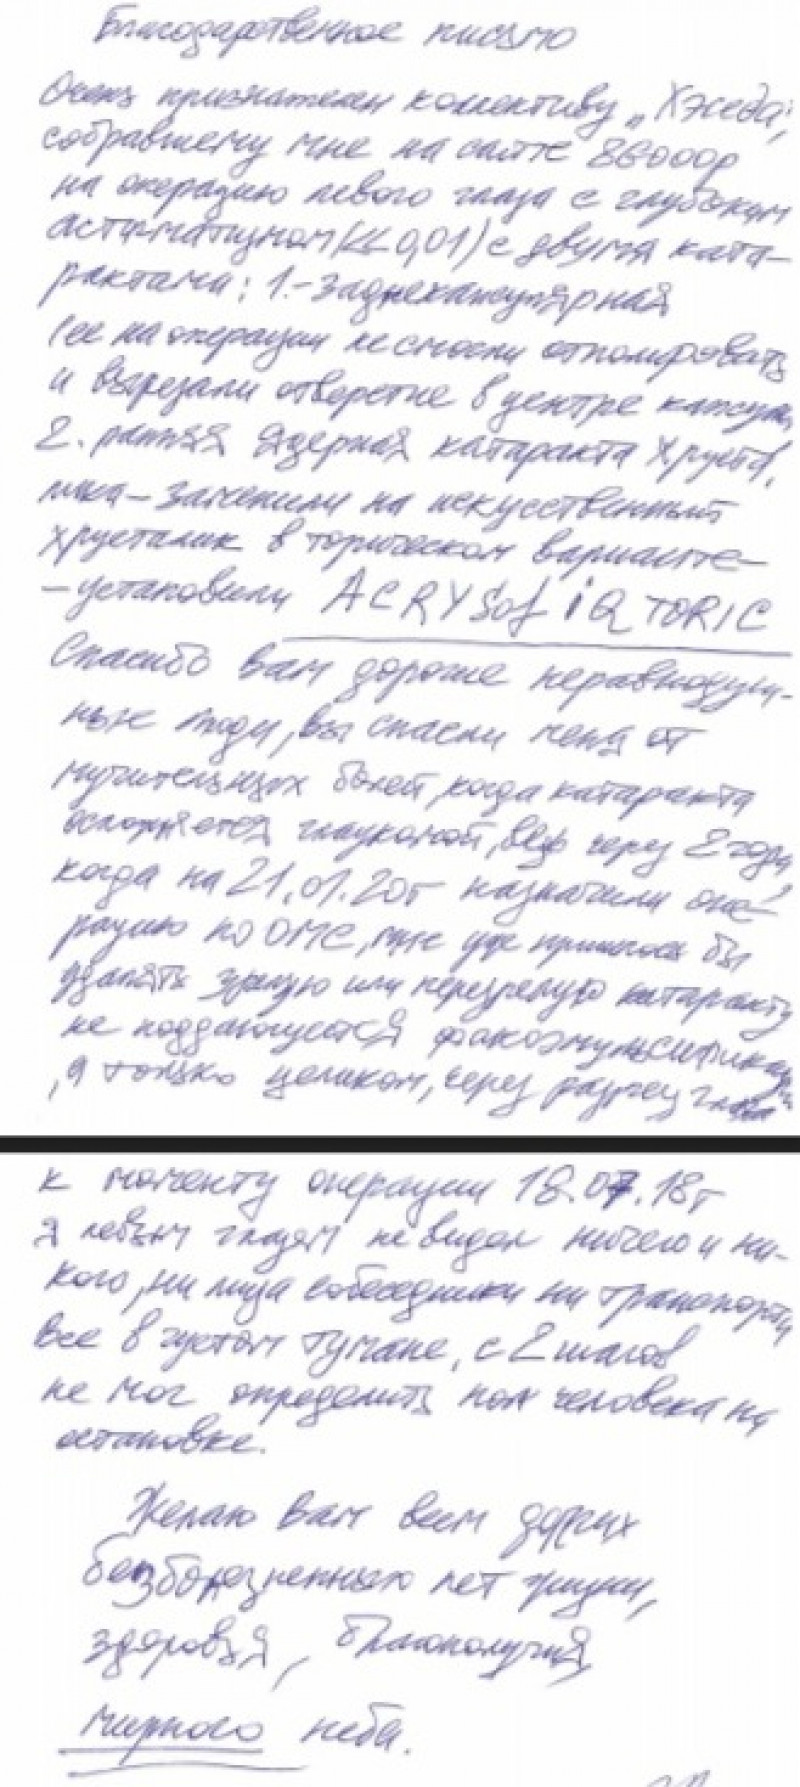 Благодарственное письмо
Очень признателен коллективу „Хэседа",
собравшему мне на сайте 86000р
на операцию левого глаза с глубоким
астигматизмом (<< 0,01) с двумя ката-
рактами: 1.- заднекапсулярная
(ее на операции не смогли отполировать
и вырезали отверстие в центре капсулы
2. ранняя ядерная катаракта хруста-
лика - заменили на искусственный
хрусталик в торическом варианте-
- установили ACRYSof iQ TORIC
Спасибо вам дорогие неравнодуш-
ные люди, вы спасли меня от
мучительных болей, когда катаракта
осложняется глаукомой, ведь через 2 года,
когда на 21.01.20г назначили опе-
рацию по ОМС, мне уже пришлось бы
удалять зрелую или перезрелую катаракту
не поддающуюся факоэмульсификации
, а только целиком, через разрез глаза
к моменту операции 18.07.18г
я левым глазам не видел ничего и ни-
кого, ни лица собеседника ни транспорта
все в густом тумане, с 2 шагов
не мог определить пол человека на
остановке.
Желаю вам всем долгих
безболезненных лет жизни,
здоровья, благополучия
мирного неба.